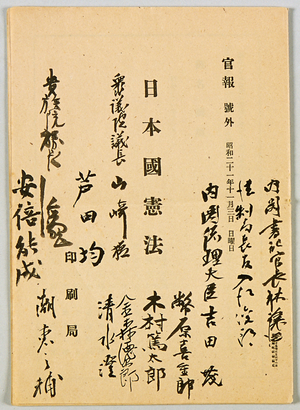 官報 號外 昭和二十一年十一月三日 日曜日
日本國憲法
印刷局
内閣書記官長 林 譲治
法制局長官 入江俊郎
内閣総理大臣 吉田茂
幣原喜重郎
木村篤太郎
金森徳次郎
清水澄
衆議院議長 山崎猛
芦田均
貴族院議長
安倍能成
潮恵之輔